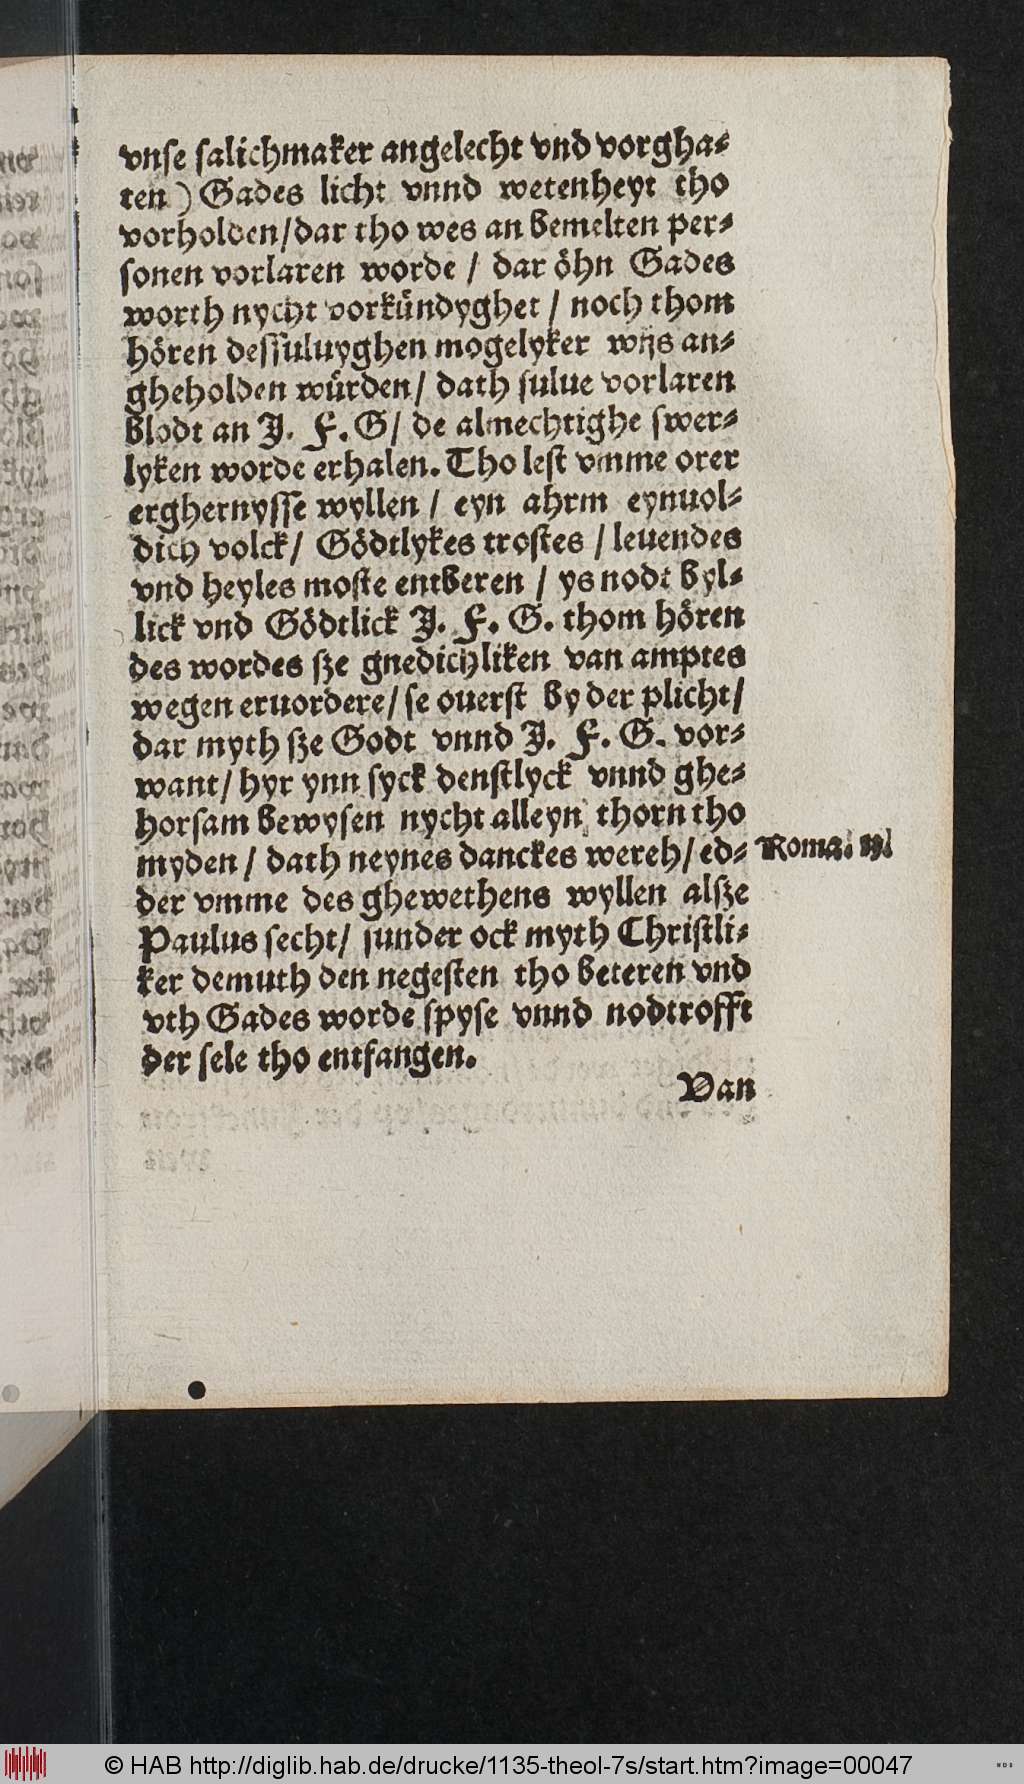 vnse salichmaker angelecht vnd vorgha⸗
ten) Gades licht vnnd wetenheyt tho
vorholden/dar tho wes an bemelten per⸗
sonen vorlaren worde / dar öhn Gades
worth nycht vorkündyghet / noch thom
hören dessuluyghen mogelyker wijs an⸗
gheholden würden/ dath sulue vorlaren
blodt an J. F. G/ de almechtighe swer⸗
lyken worde erhalen. Tho lest vmme orer
erghernysse wyllen / eyn ahrm eynuol⸗
dich volck/ Gödtlykes trostes / leuendes
vnd heyles moste entberen / ys nodt byl⸗
lick vnd Gödtlick J. F. G. thom hören
des wordes sze gnedichliken van amptes
wegen eruordere/ se ouerst by der plicht/
dar myth sze Godt vnnd J. F. G. vor⸗
want/ hyr ynn syck denstlyck vnnd ghe⸗
horsam bewysen nycht alleyn thorn tho
myden / dath neynes danckes wereh/ ed⸗
der vmme des ghewethens wyllen alsze
Paulus secht/ sunder ock myth Christli⸗
ker demuth den negesten tho beteren vnd
vth Gades worde spyse vnnd nodtrofft
der sele tho entfangen.
Van
Roma.
© HAB http://diglib.hab.de/drucke/1135-theol-7s/start.htm?image=00047